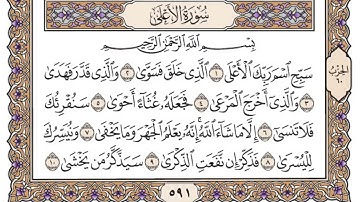 سُورَةُ الْأَعْلَىٰ
بِسْمِ اللَّهِ الرَّحْمَٰنِ الرَّحِيمِ
سَبِّحِ اسْمَ رَبِّكَ الْأَعْلَى ١ الَّذِي خَلَقَ فَسَوَّىٰ ٢ وَالَّذِي قَدَّرَ فَهَدَىٰ
٣ وَالَّذِي أَخْرَجَ الْمَرْعَىٰ ٤ فَجَعَلَهُ غُثَاءً أَحْوَىٰ ٥ سَنُقْرِئُكَ
فَلَا تَنسَىٰ ٦ إِلَّا مَا شَاءَ اللَّهُ إِنَّهُ يَعْلَمُ الْجَهْرَ وَمَا يَخْفَىٰ ٧ وَنُيَسِّرُكَ
لِلْيُسْرَىٰ ٨ فَذَكِّرْ إِن نَّفَعَتِ الذِّكْرَىٰ ٩ سَيَذَّكَّرُ مَن يَخْشَىٰ ١٠
الحزب
٦٠
٥٩١